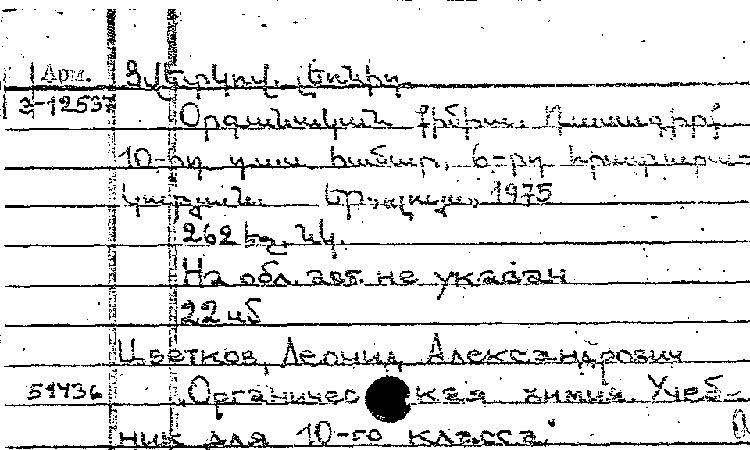 Арм. Ցվետկով, Լեոնիդ
3-12537
Օրգանական քիմիա. Դասագիրք
10-րդ դաս. համար, 6-րդ հրատարա-
կություն. Եր., «Լույս», 1975
262 էջ, նկ.
На обл. авт. не указан
22 սմ
Цветков, Леонид Александрович
51436 „Органическая химия. Учеб-
ник для 10-го класса"